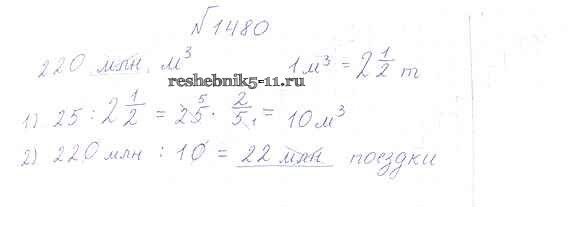 №1480
220 млн. м³ 1м³ = 2 1/2 т
reshebnik5-11.ru
1) 25 : 2 1/2 = 25 5 · 2/5 1 = 10м³
2) 220 млн : 10 = 22 млн поездки